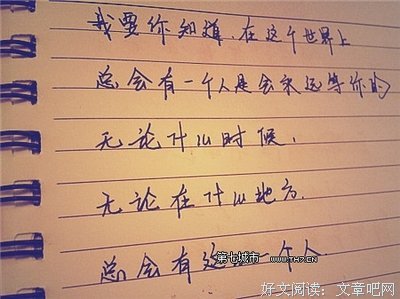 我要你知道,在这个世界上
总会有一个人是会永远等你的
无论什么时候,
无论在什么地方.
总会有这么一个人.
第七城市 WWW.TH7.CN
好文阅读：文章吧网